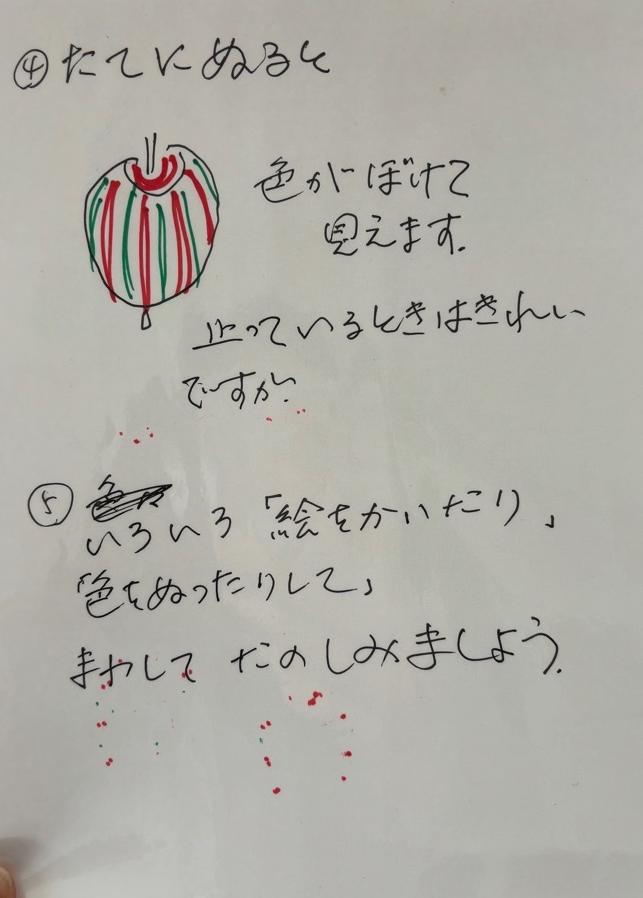 ④ たてにぬると
色がぼけて
見えます。
止っているときはきれい
ですが、
⑤
いろいろ「絵をかいたり」
「色をぬったりして」
まわして たのしみましょう。